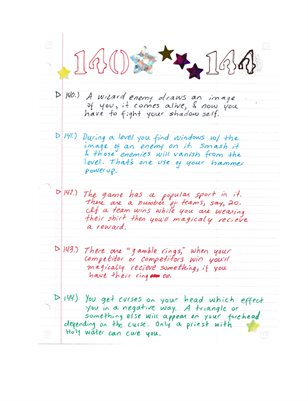 140 144
140.) A wizard enemy draws an image
of you, it comes alive, & now you
have to fight your shadow self.
141.) During a level you find windows w/ the
image of an enemy on it. Smash it
& those enemies will vanish from the
level. That's one use of your hammer
powerup.
142.) The game has a popular sport in it.
There are a number of teams, say, 20.
If a team wins while you are wearing
their shirt then you'd magicaly recieve
a reward.
143.) There are "gamble rings," when your
competitor or competitors win you'll
magically recieve something, if you
have their ring on.
144.) You get curses on your head which effect
you in a negative way. A triangle or
something else will appear on your forehead
depending on the curse. Only a priest with
Holy water can cure you.